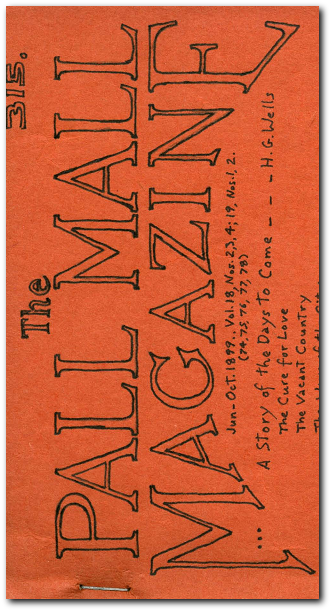 315.
The
PALL MALL
MAGAZINE
Jun-Oct. 1899. Vol. 18, Nos. 2, 3, 4; 19, Nos. 1, 2.
(74, 75, 76, 77, 78)
... A Story of the Days to Come - - - H.G. Wells
The Cure for Love
The Vacant Country